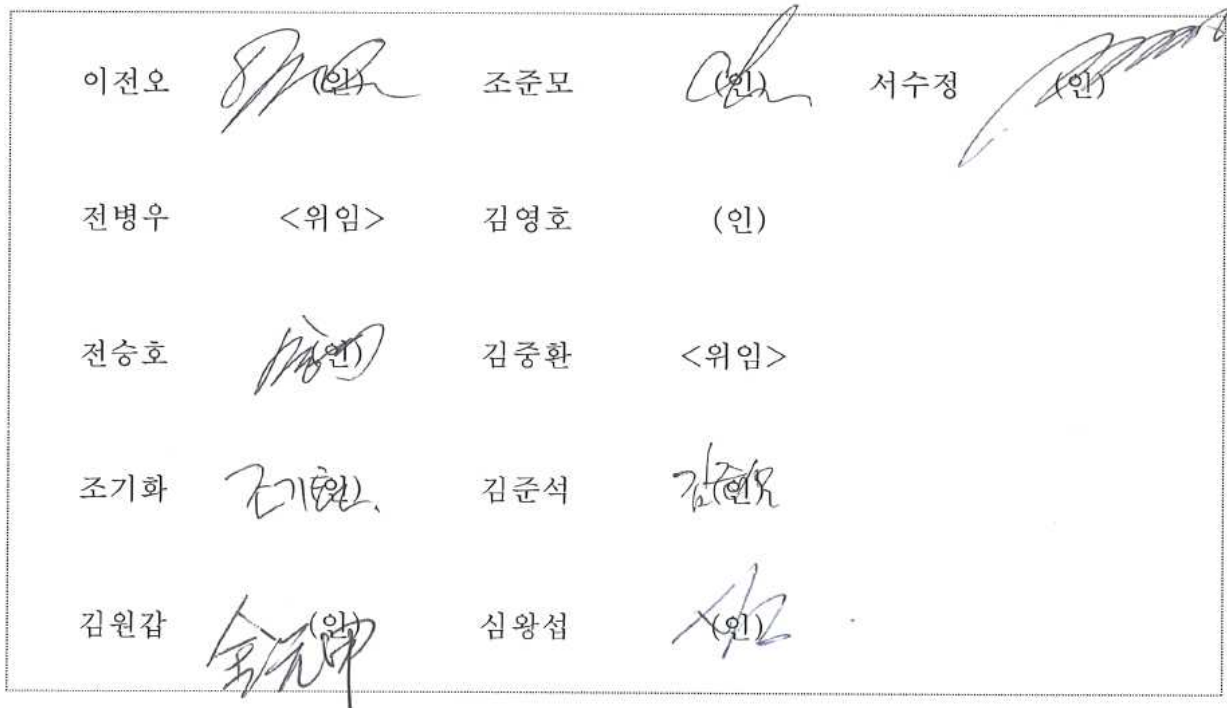 이전오 (인) 조준모 (인) 서수정 (인)
전병우 <위임> 김영호 (인)
전승호 (인) 김중환 <위임>
조기화 (인) 김준석 (인)
김원갑 (인) 심왕섭 (인)